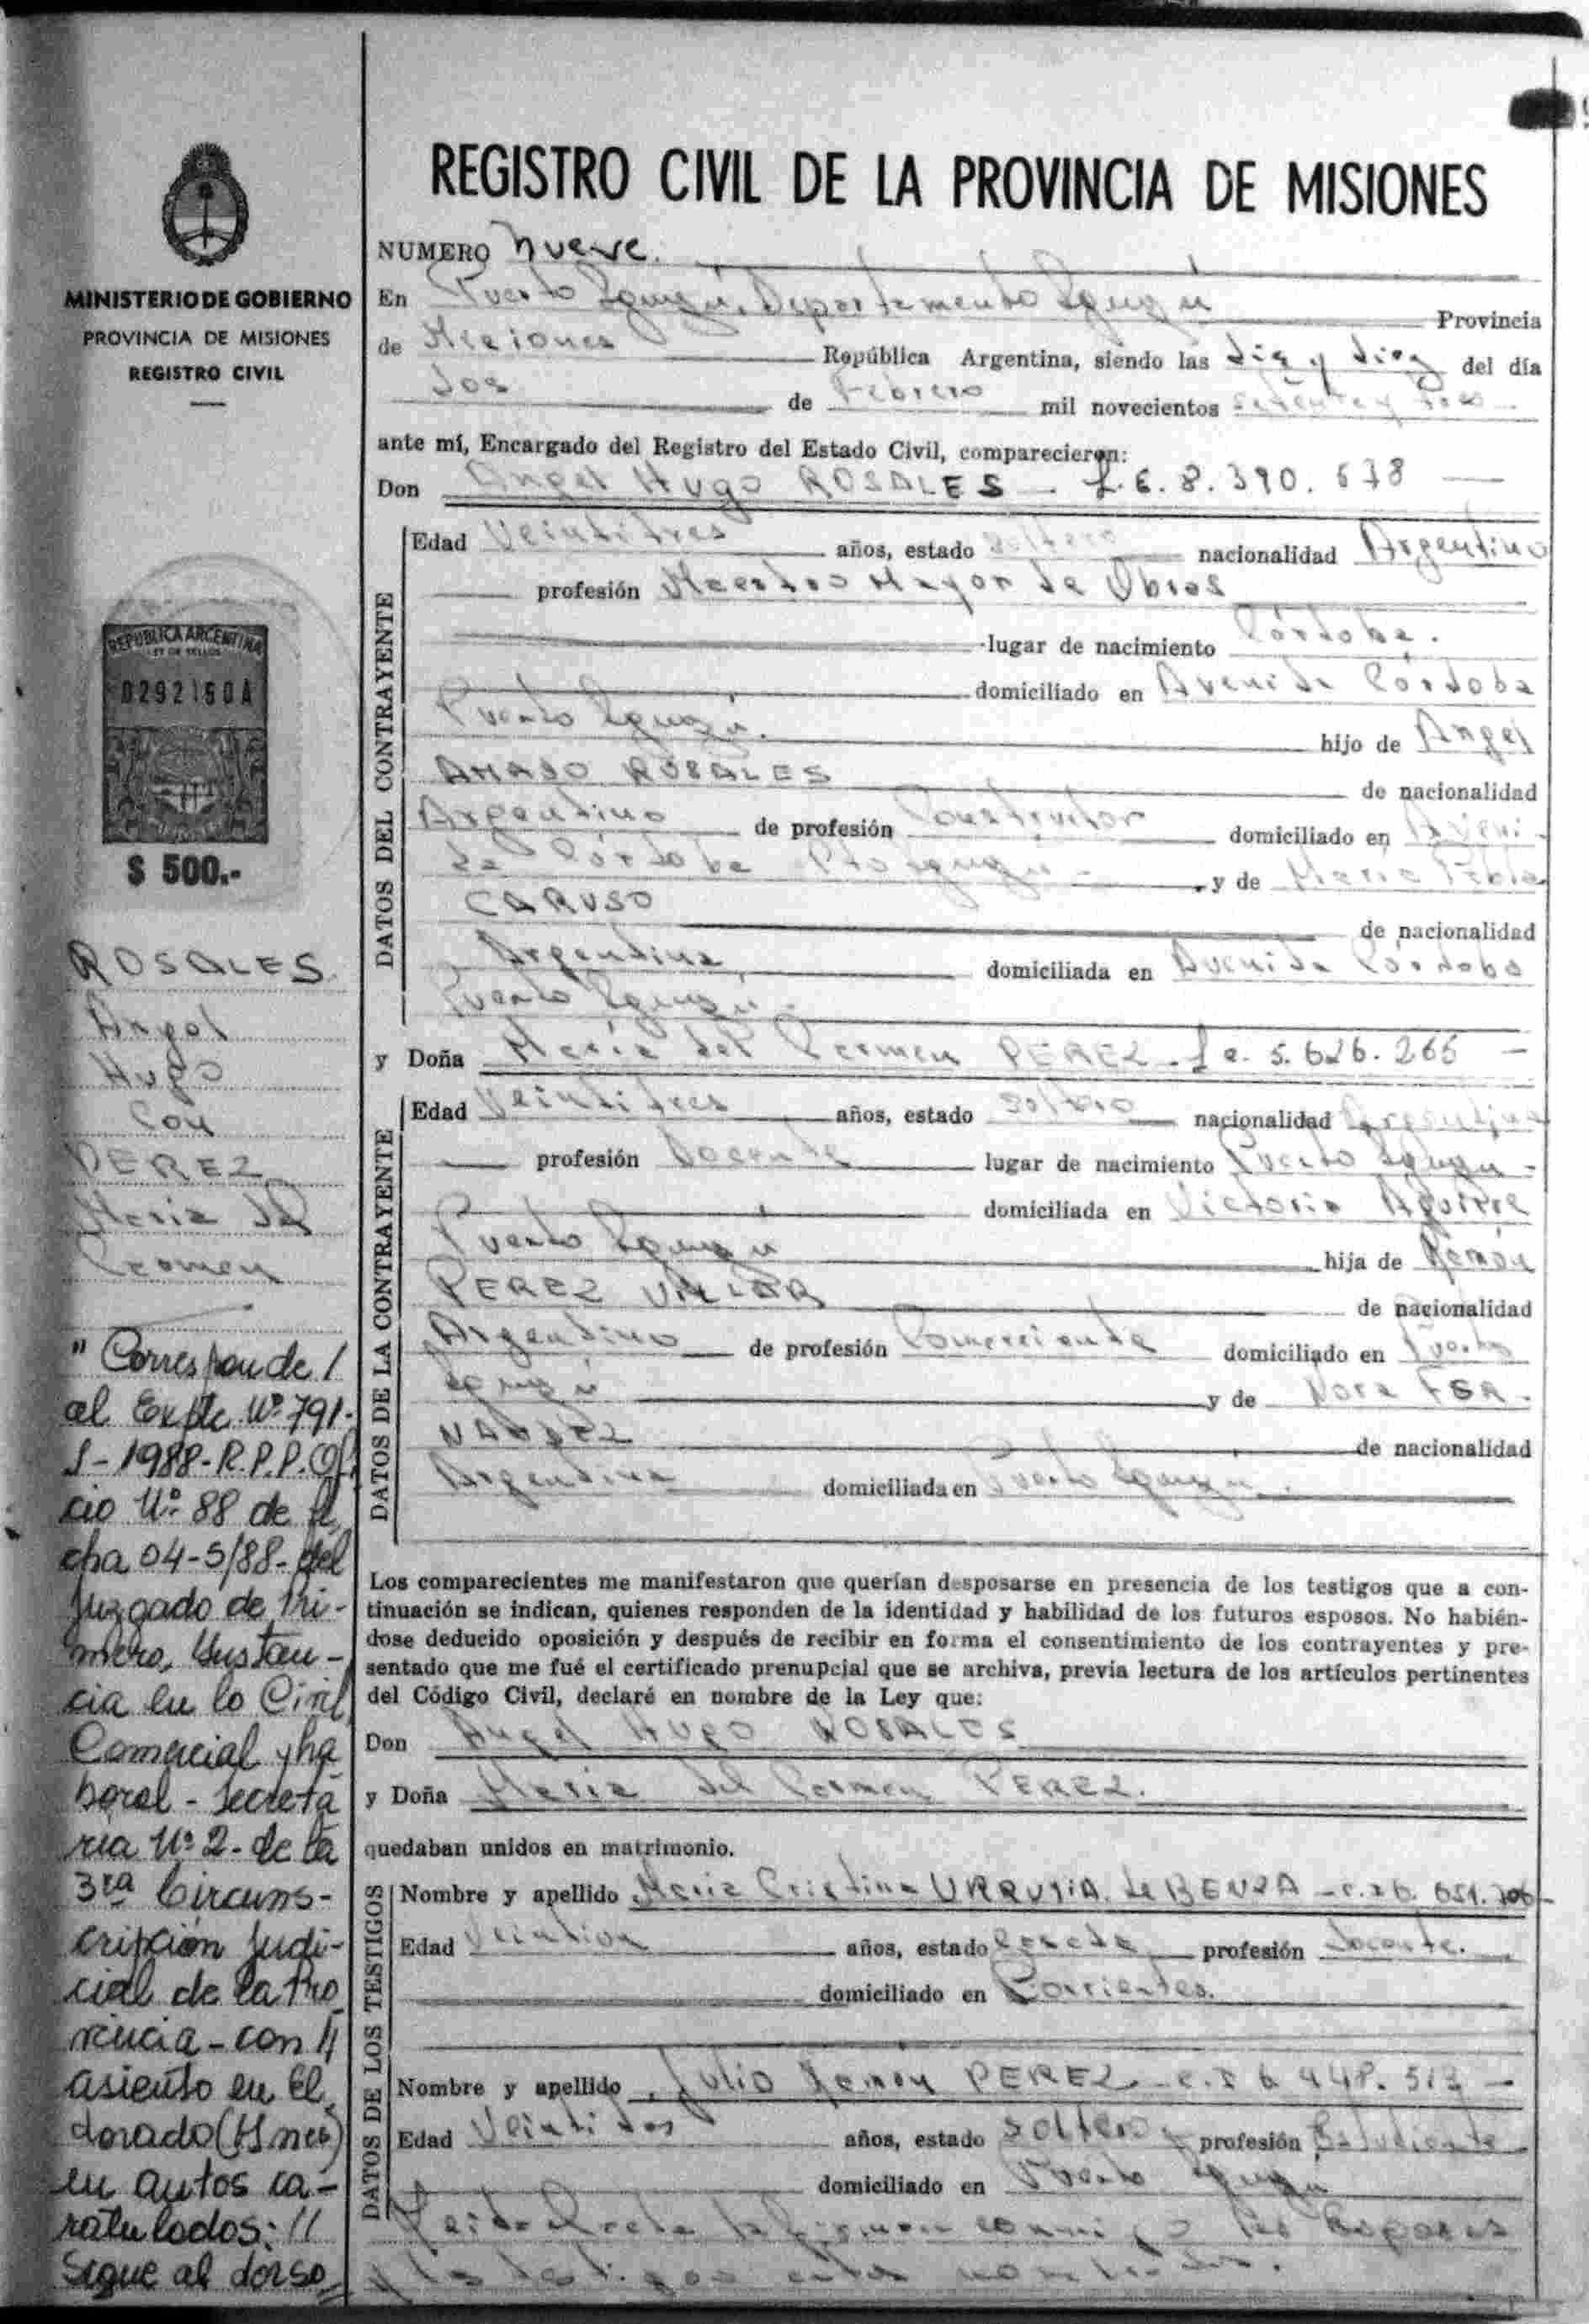 REGISTRO CIVIL DE LA PROVINCIA DE MISIONES
MINISTERIO DE GOBIERNO
PROVINCIA DE MISIONES
REGISTRO CIVIL
REPUBLICA ARGENTINA
LEY DE SELLOS
0292150A
$ 500.-
ROSALES
Angel
Hugo
con
PEREZ
Maria del
Carmen
" Corresponde /
al Expte Nº 791-
1988-R.P.P. Ofi
cio Nº 88 de fe
cha 04-5/88- del
Juzgado de Pri-
mera Instan-
cia en lo Civil
Comercial y La
boral - Secreta
ria Nº 2- de la
3ra Circuns-
cripción Judi-
cial de la Pro
vincia - con //
asiento en El
dorado (Mnes)
en autos ca-
ratulados: //
Sigue al dorso
NUMERO Nueve.
En Puerto Iguazú, Departamento Iguazú Provincia
de Misiones República Argentina, siendo las diez y diez del día
dos de Febrero mil novecientos setenta y
ante mí, Encargado del Registro del Estado Civil, comparecieron:
Don Angel Hugo ROSALES - L.E. 8.390.678
DATOS DEL CONTRAYENTE
Edad Veintitres años, estado soltero nacionalidad Argentino
profesión Maestro Mayor de Obras
lugar de nacimiento Córdoba.
domiciliado en Avenida Córdoba
Puerto Iguazú. hijo de Angel
AMADO ROSALES de nacionalidad
Argentino de profesión Constructor domiciliado en Aveni-
da Córdoba Pto Iguazú - y de Maria
CARUSO de nacionalidad
Argentina, domiciliada en Avenida Córdoba
Puerto Iguazú -
y Doña Maria del Carmen PEREZ - 5.626.266
DATOS DE LA CONTRAYENTE
Edad Veintitres años, estado soltera nacionalidad Argentina
profesión Docente lugar de nacimiento Puerto Iguazú -
domiciliada en Victoria Aguirre
Puerto Iguazú hija de Ramón
PEREZ VILLAR de nacionalidad
Argentino de profesión Comerciante domiciliado en Puerto
Iguazú y de Nora FER-
NANDEZ de nacionalidad
Argentina domiciliada en Puerto Iguazú.
Los comparecientes me manifestaron que querían desposarse en presencia de los testigos que a con-
tinuación se indican, quienes responden de la identidad y habilidad de los futuros esposos. No habién-
dose deducido oposición y después de recibir en forma el consentimiento de los contrayentes y pre-
sentado que me fué el certificado prenupcial que se archiva, previa lectura de los artículos pertinentes
del Código Civil, declaré en nombre de la Ley que:
Don Angel Hugo ROSALES
y Doña Maria del Carmen PEREZ.
quedaban unidos en matrimonio.
DATOS DE LOS TESTIGOS
Nombre y apellido Maria Cristina URRUTIA de BENZA
Edad años, estado casada profesión Docente.
domiciliado en Corrientes.
Nombre y apellido Julio Ramón PEREZ
Edad Veintidos años, estado soltero profesión Estudiante
domiciliado en Puerto Iguazú
Leida el acta la firman conmigo los esposos
y los testigos antes nombrados.